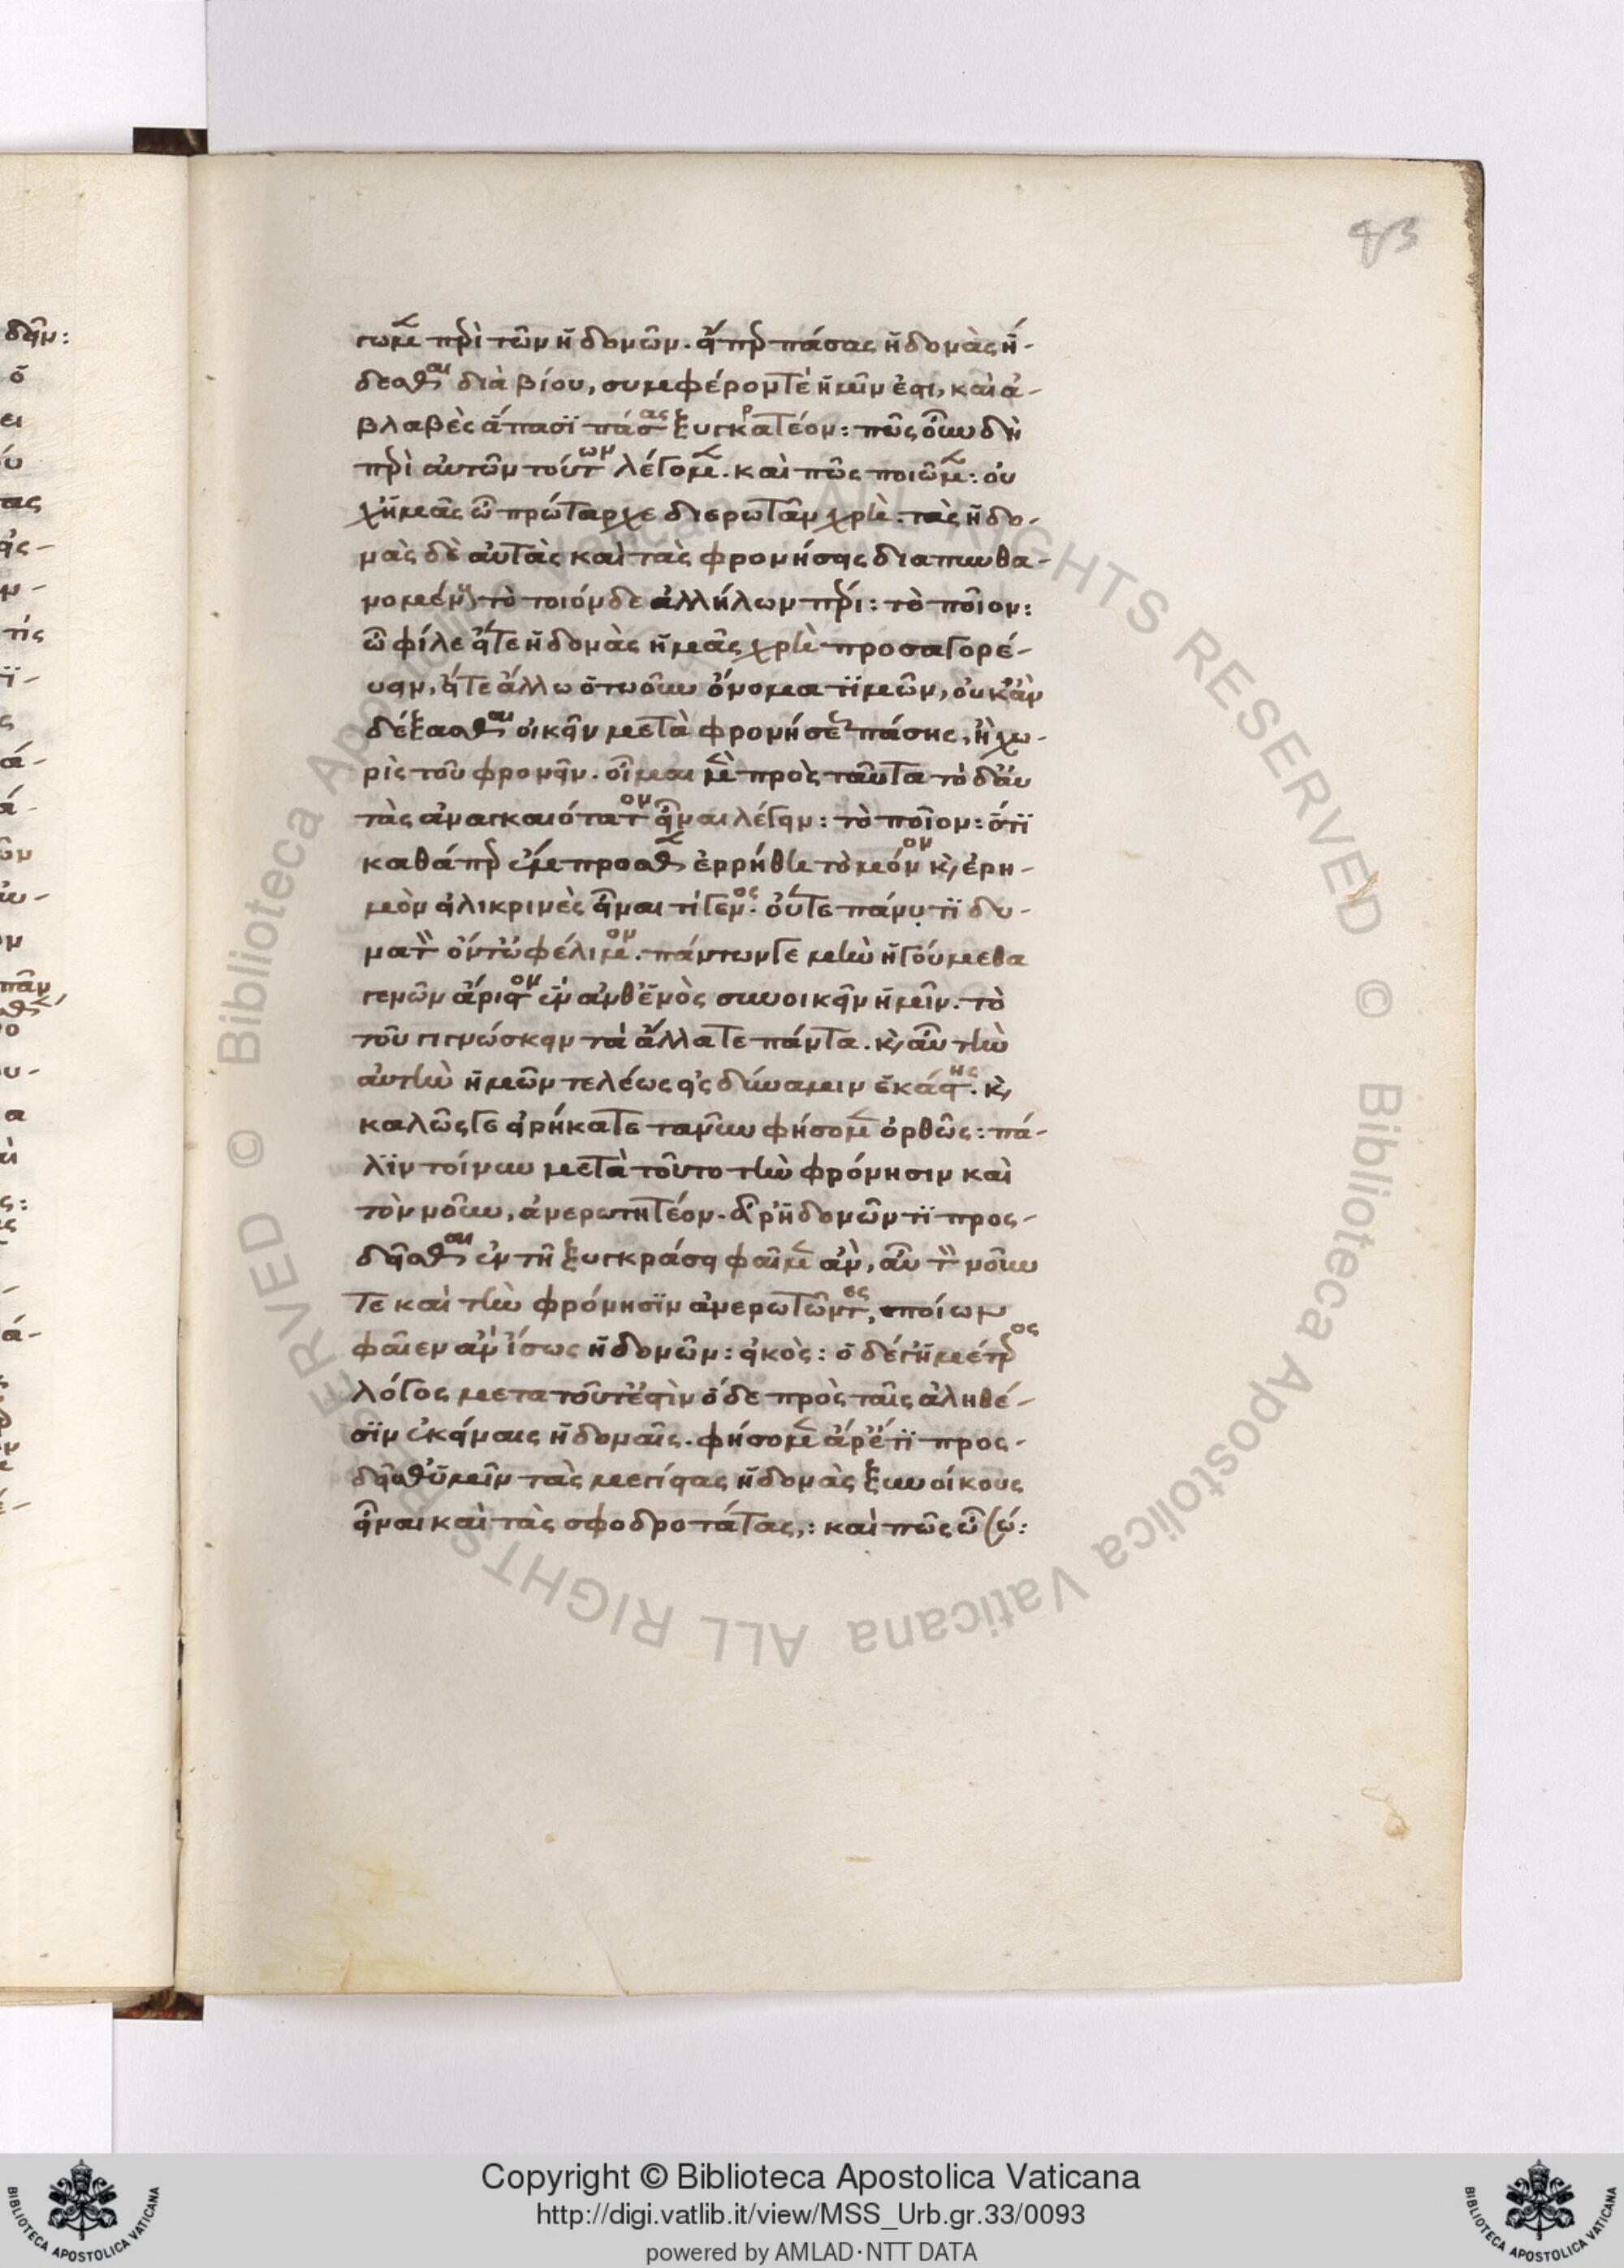 83
γωμεν περὶ τῶν ἡδονῶν. εἴπερ πάσας ἡδονὰς ἥ-
δεσθαι διὰ βίου, συμφέρον τὲ ἡμῖν ἐστι, καὶ ἀ-
βλαβὲς ἅπασϊ πάσας ξυγκρατέον: πῶς οὖν δὴ
περὶ αὐτῶν τούτων λέγομεν. καὶ πῶς ποιῶμεν: οὐ
χ ἡμᾶς ὦ πρώταρχε διερωτᾶν χρὴ. τὰς ἡδο-
νὰς δὲ αὐτὰς καὶ τὰς φρονήσεις διαπυνθα-
νομένους τὸ τοιόνδε ἀλλήλων πέρι: τὸ ποῖον:
ὦ φίλε εἴτε ἡδονὰς ἡμᾶς χρὴ προσαγορέ-
υειν, εἴτε ἄλλω ὅτωοῦν ὄνοματϊ μῶν, οὐκ ἂν
δέξασθαι οἰκεῖν μετὰ φρονήσεως πάσης, ἢ χω-
ρὶς τοῦ φρονεῖν. οἶμαι μὲν πρὸς ταῦτα τὸ δ' αὐ
τὰς ἀναγκαιότατον εἶναι λέγειν: τὸ ποῖον: ὅτϊ
καθάπερ ἔμπροσθεν ἐρρήθη τὸ μόνον καὶ ἐρη-
μὸν εἰλικρινὲς εἶναι τὶ γένος. οὔτε πάνυ τϊ δυ-
νατὸν οὔτ' ὠφέλιμον. πάντων γε μὴν ἡγούμεθα
γενῶν ἄριστον ἓν ἀνθ' ἑνὸς συνοικεῖν ἡμῖν. τὸ
τοῦ γιγνώσκειν τὰ ἄλλα τε πάντα. καὶ αὖ τὴν
αὐτὴν ἡμῶν τελέως εἰς δύναμιν ἑκάστης. καὶ
καλῶς γε εἰρήκατε τανῦν φήσομεν ὀρθῶς: πά-
λϊν τοίνυν μετὰ τοῦτο τὴν φρόνησιν καὶ
τὸν νοῦν, ἀνερωτητέον. ἆρ' ἡδονῶν τϊ προς-
δεῖσθαι ἐν τῆ ξυγκράσει φαῖμεν ἂν, αὖ τὸν νοῦν
τε καὶ τὴν φρόνησϊν ἀνερωτῶντες, ποίων
φαῖεν ἂν ἴσως ἡδονῶν: εἰκὸς: ὁ δέ γ' ἡμέτερος
λόγος μετα τοῦτ' ἐστὶν ὅδε πρὸς ταῖς ἀληθέ-
σϊν ἐκείναις ἡδοναῖς. φήσομεν ἆρ' ἔτϊ προς-
δεῖσθ' ὑμῖν τὰς μεγίστας ἡδονὰς ξυνοίκους
εἶναι καὶ τὰς σφοδροτάτας,: καὶ πῶς ὦ
Copyright © Biblioteca Apostolica Vaticana
http://digi.vatlib.it/view/MSS_Urb.gr.33/0093
powered by AMLAD·NTT DATA